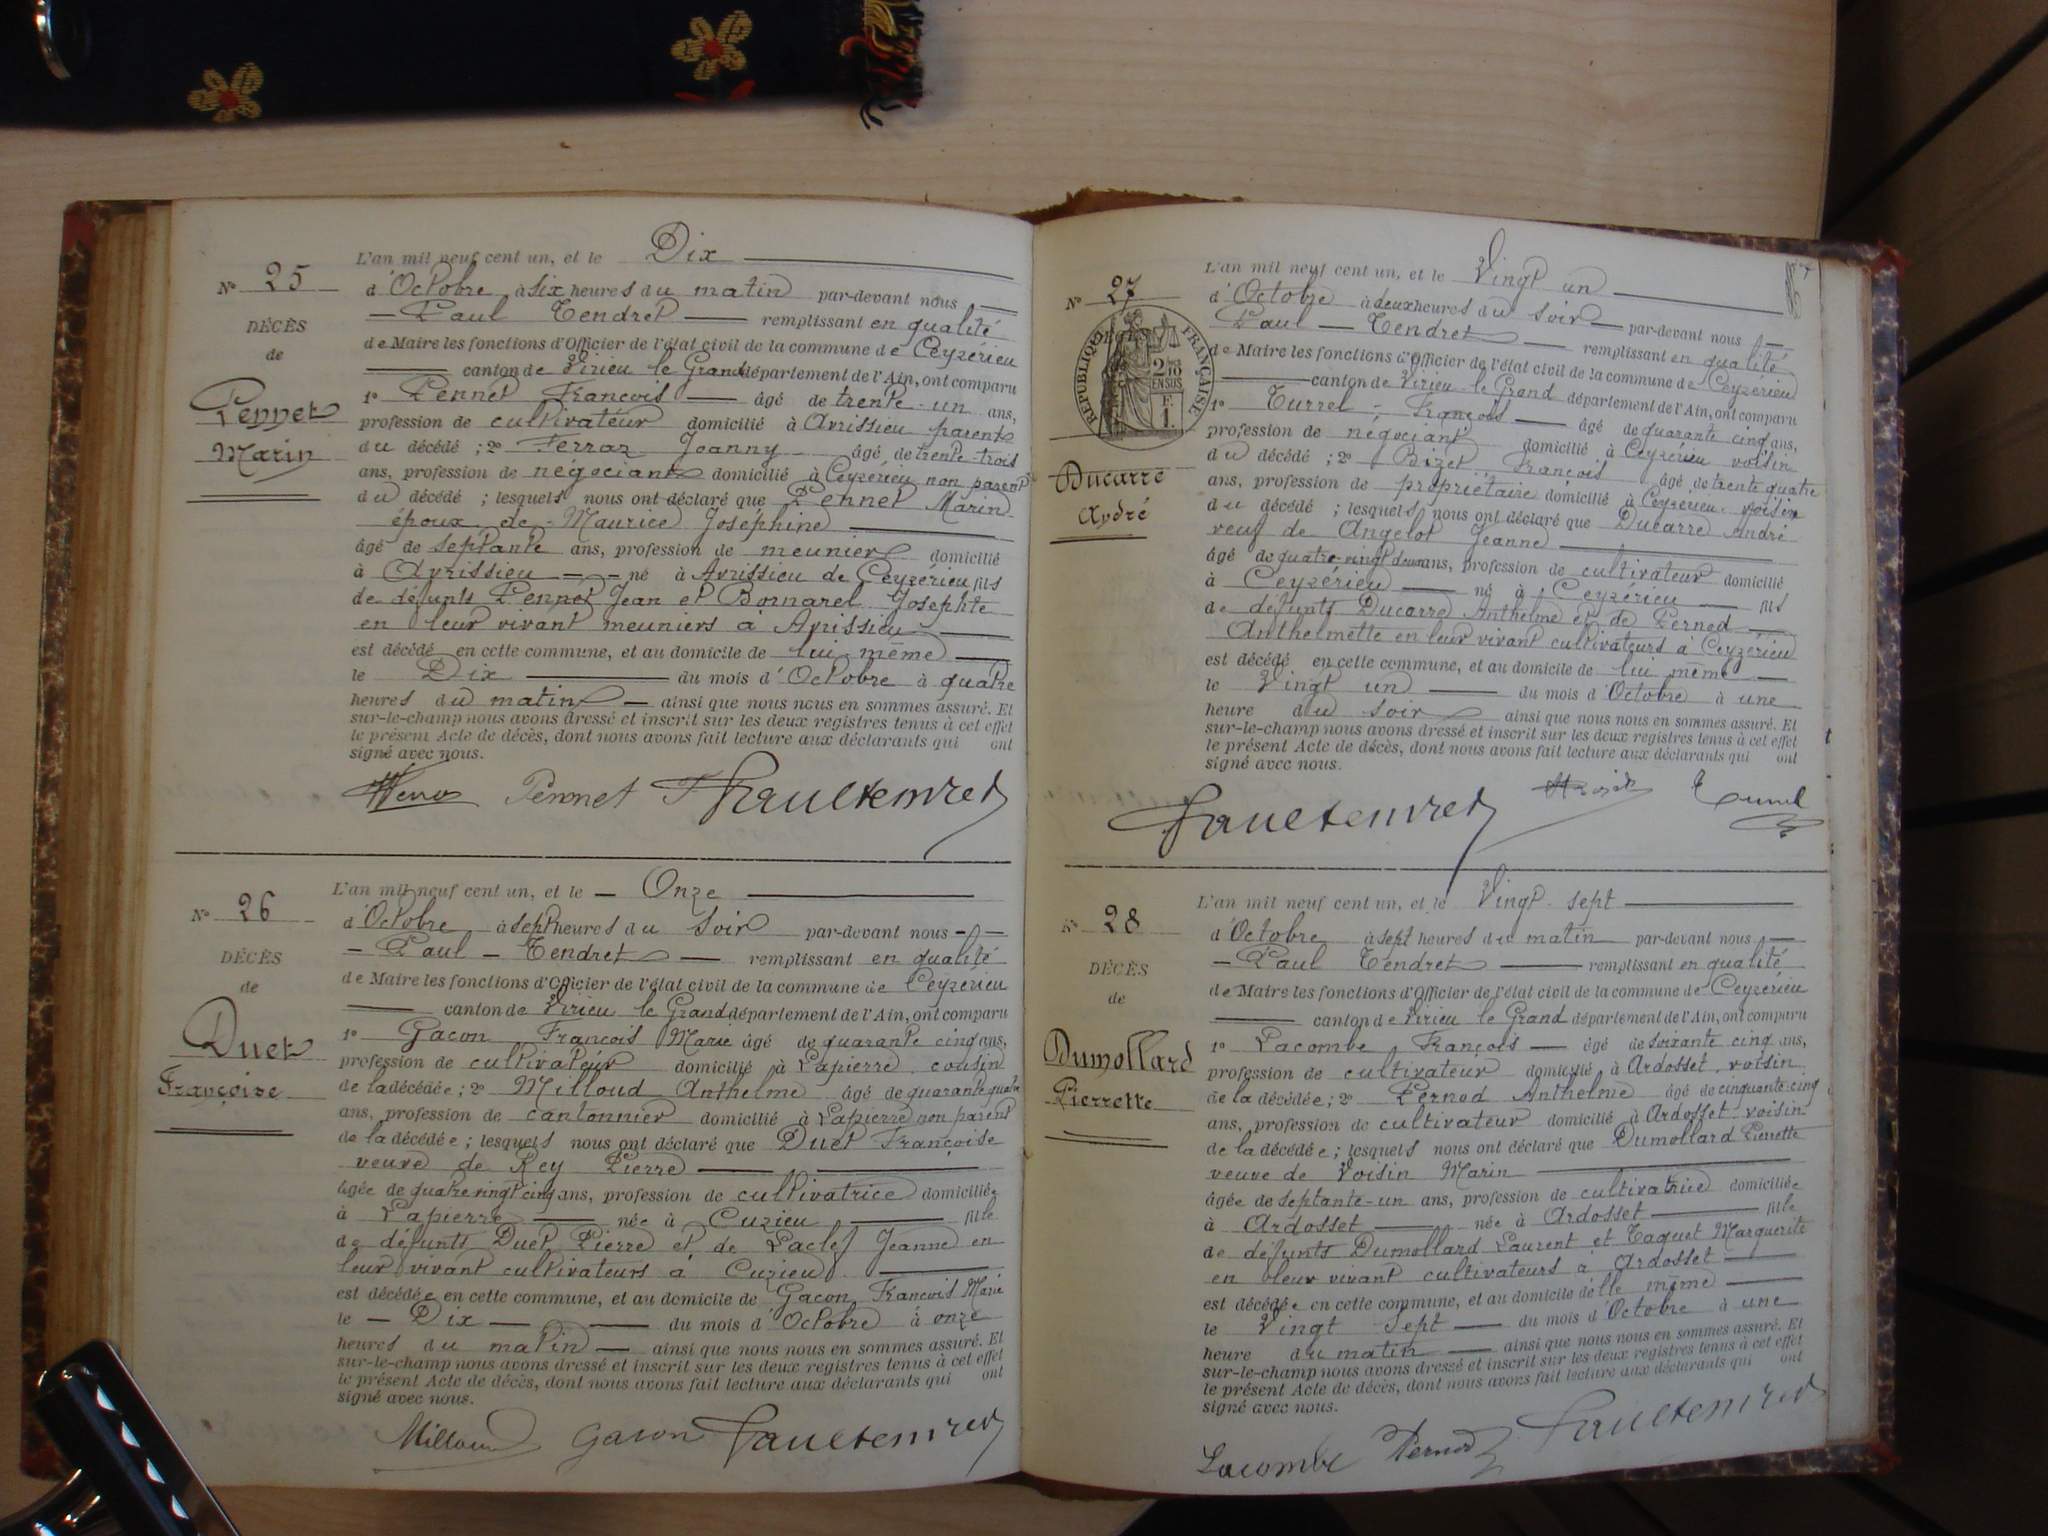 L'an mil neuf cent un, et le Dix
N° 25
d'Octobre, à six heures du matin par-devant nous
Paul Tendret remplissant en qualité
DÉCÈS
de Maire les fonctions d'Officier de l'état civil de la commune de Ceyzérieu
de
canton de Virieu le Grand département de l'Ain, ont comparu
Pennet
Marin
1° Pennet François âgé de trente-un ans,
profession de cultivateur domicilié à Avrissieu parent
du décédé ; 2° Ferraz Joanny âgé de trente-trois
ans, profession de négociant domicilié à Ceyzérieu non parent
du décédé ; lesquels nous ont déclaré que Pennet Marin
époux de Maurice Joséphine
âgé de septante ans, profession de meunier domicilié
à Avrissieu né à Avrissieu de Ceyzérieu fils
de défunts Pennet Jean et Bornarel Josephte
en leur vivant meuniers à Avrissieu
est décédé en cette commune, et au domicile de lui même
le Dix du mois d'Octobre à quatre
heures du matin ainsi que nous nous en sommes assuré. Et
sur-le-champ nous avons dressé et inscrit sur les deux registres tenus à cet effet
le présent Acte de décès, dont nous avons fait lecture aux déclarants qui ont
signé avec nous.
Pennet F Paul Tendret
L'an mil neuf cent un, et le Onze
N° 26
d'Octobre à sept heures du soir par-devant nous
Paul Tendret remplissant en qualité
DÉCÈS
de Maire les fonctions d'Officier de l'état civil de la commune de Ceyzérieu
de
canton de Virieu le Grand département de l'Ain, ont comparu
Duet
Françoise
1° Gacon François Marie âgé de quarante cinq ans,
profession de cultivateur domicilié à Lapierre cousin
de la décédée ; 2° Milloud Anthelme âgé de quarante quatre
ans, profession de cantonnier domicilié à Lapierre non parent
de la décédée ; lesquels nous ont déclaré que Duet Françoise
veuve de Rey Pierre
âgée de quatre vingt cinq ans, profession de cultivatrice domiciliée
à Lapierre née à Cuzieu fille
de défunts Duet Pierre et de Laclef Jeanne en
leur vivant cultivateurs à Cuzieu
est décédée en cette commune, et au domicile de Gacon François Marie
le Dix du mois d'Octobre à onze
heures du matin ainsi que nous nous en sommes assuré. Et
sur-le-champ nous avons dressé et inscrit sur les deux registres tenus à cet effet
le présent Acte de décès, dont nous avons fait lecture aux déclarants qui ont
signé avec nous.
Milloud Gacon Paul Tendret
L'an mil neuf cent un, et le Vingt un
N° 27
d'Octobre à deux heures du soir par-devant nous
Paul Tendret remplissant en qualité
RÉPUBLIQUE FRANÇAISE
2 10
EN SUS
F.
1.
de Maire les fonctions d'Officier de l'état civil de la commune de Ceyzérieu
canton de Virieu le Grand département de l'Ain, ont comparu
1° Turrel François âgé de quarante cinq ans,
profession de négociant domicilié à Ceyzérieu voisin
Ducarre
André
du décédé ; 2° Bizet François âgé de trente quatre
ans, profession de propriétaire domicilié à Ceyzérieu voisin
du décédé ; lesquels nous ont déclaré que Ducarre André
veuf de Angelot Jeanne
âgé de quatre-vingt deux ans, profession de cultivateur domicilié
à Ceyzérieu né à Ceyzérieu fils
de défunts Ducarre Anthelme et de Pernod
Anthelmette en leur vivant cultivateurs à Ceyzérieu
est décédé en cette commune, et au domicile de lui même
le Vingt un du mois d'Octobre à une
heure du soir ainsi que nous nous en sommes assuré. Et
sur-le-champ nous avons dressé et inscrit sur les deux registres tenus à cet effet
le présent Acte de décès, dont nous avons fait lecture aux déclarants qui ont
signé avec nous.
Paul Tendret
L'an mil neuf cent un, et le Vingt sept
N° 28
d'Octobre à sept heures du matin par-devant nous
Paul Tendret remplissant en qualité
DÉCÈS
de Maire les fonctions d'Officier de l'état civil de la commune de Ceyzérieu
de
canton de Virieu le Grand département de l'Ain, ont comparu
Dumollard
Pierrette
1° Lacombe François âgé de soixante cinq ans,
profession de cultivateur domicilié à Ardosset voisin
de la décédée ; 2° Pernod Anthelme âgé de cinquante cinq
ans, profession de cultivateur domicilié à Ardosset voisin
de la décédée ; lesquels nous ont déclaré que Dumollard Pierrette
veuve de Voisin Marin
âgée de septante-un ans, profession de cultivatrice domiciliée
à Ardosset née à Ardosset fille
de défunts Dumollard Laurent et Taquet Marguerite
en leur vivant cultivateurs à Ardosset
est décédée en cette commune, et au domicile d'elle même
le Vingt sept du mois d'Octobre à une
heure du matin ainsi que nous nous en sommes assuré. Et
sur-le-champ nous avons dressé et inscrit sur les deux registres tenus à cet effet
le présent Acte de décès, dont nous avons fait lecture aux déclarants qui ont
signé avec nous.
Lacombe Pernod Paul Tendret